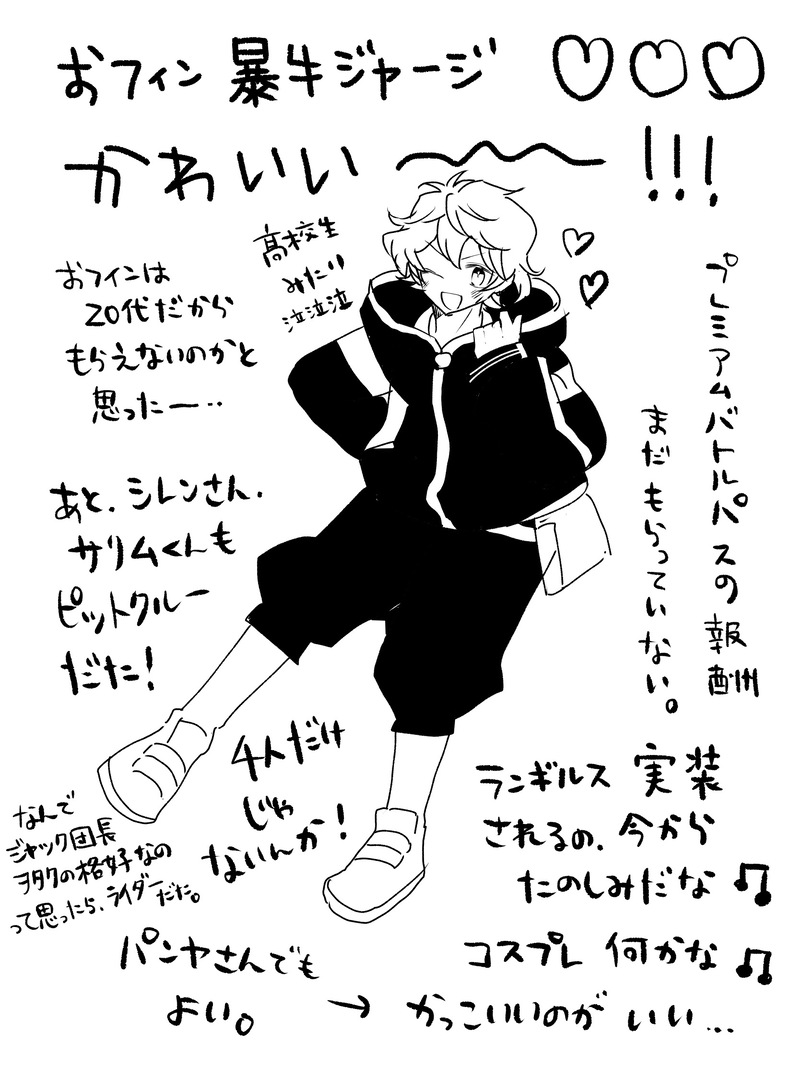 おフィン 暴牛ジャージ ♡♡♡
かわいい〜〜!!!
高校生
みたい
泣泣泣
おフィンは
20代だから
もらえないのかと
思ったー‥
プレミアムバトルパスの報酬
まだもらっていない。
あと、シレンさん、
サリムくんも
ピットクルー
だた!
4人だけ
じゃ
ないんか!
なんで
ジャック団長
ヲタクの格好なの
って思ったら、ライダーだた。
ランギルス 実装
されるの、今から
たのしみだな♫
コスプレ 何かな♫
パンヤさんでも
よい。
→ かっこいいのが いい…